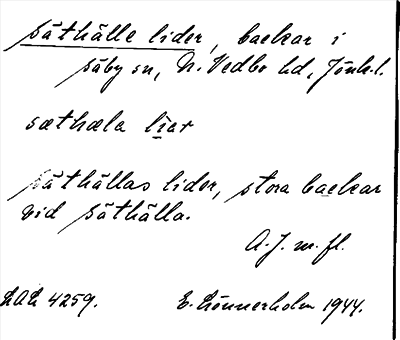 Säthälle lider, backar i
Säby sn, N. Vedbo hd, Jönk.l.
sæthæla liar
Säthällas lider, stora backar
vid Säthälla.
A.J. m. fl.
LAL 4259. E. Lönnerholm 1944.